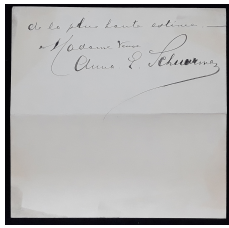 de la plus haute estime
à Madame Vve
Anna E. Schuurman